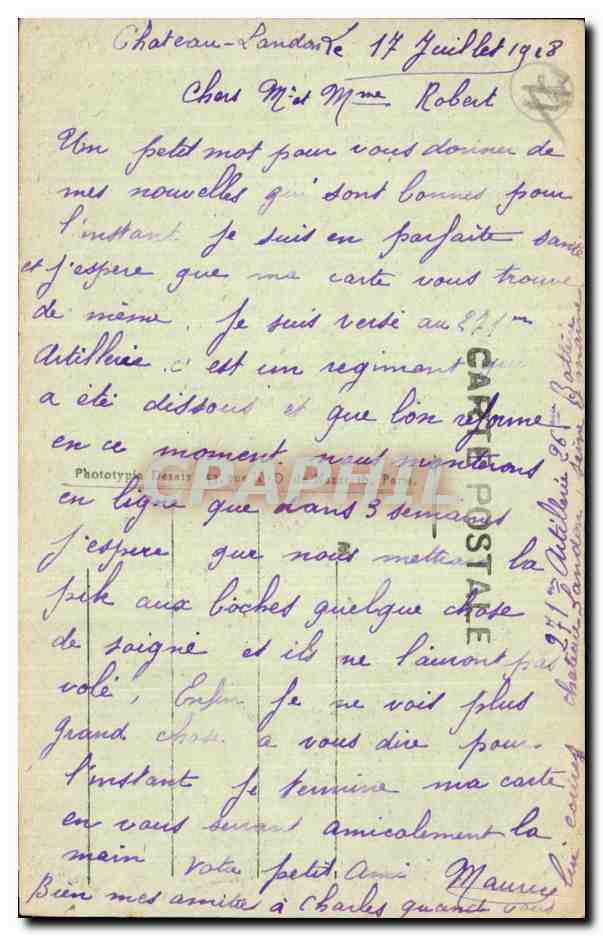 Chateau-Landon le 17 Juillet 1918
Chers Mr et Mme Robert
Un petit mot pour vous donner de
mes nouvelles qui sont bonnes pour
l'instant je suis en parfaite santé
et j'espere que ma carte vous trouve
de même. Je suis versé au 271me
Artillerie c'est un regiment qui
a été dissous et que l'on reforme
en ce moment nous monterons
en ligne que dans 3 semaines
j'espere que nous mettrons la
pik aux boches quelque chose
de soigné et ils ne l'auront pas
volé, Enfin Je ne vois plus
grand chose a vous dire pour
l'instant Je termine ma carte
en vous serrant amicalement la
main Votre petit Ami Maurice
Bien mes amitié à Charles quand vous
lui courez
271me Artillerie 26me Batterie
chateau Landon seine et marne
CARTE POSTALE
Phototypie Paris
CPAPHIL